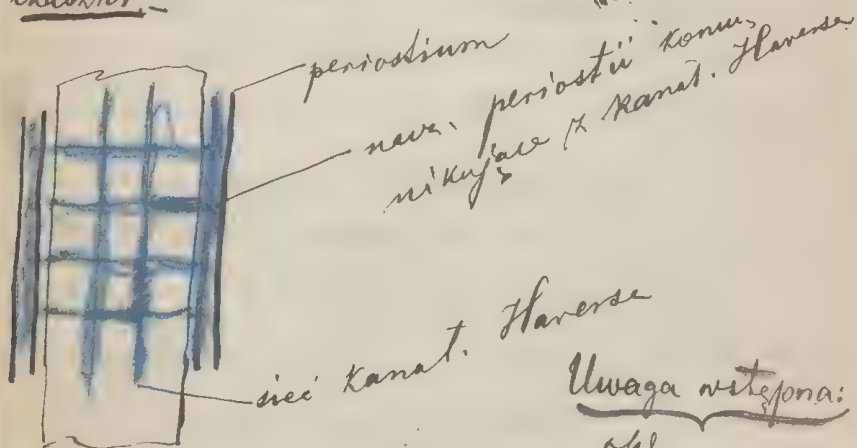 periostium
nacz. periostii komu-
nikujące z kanał. Haversa
sieć kanał. Haversa
Uwaga wstępna: